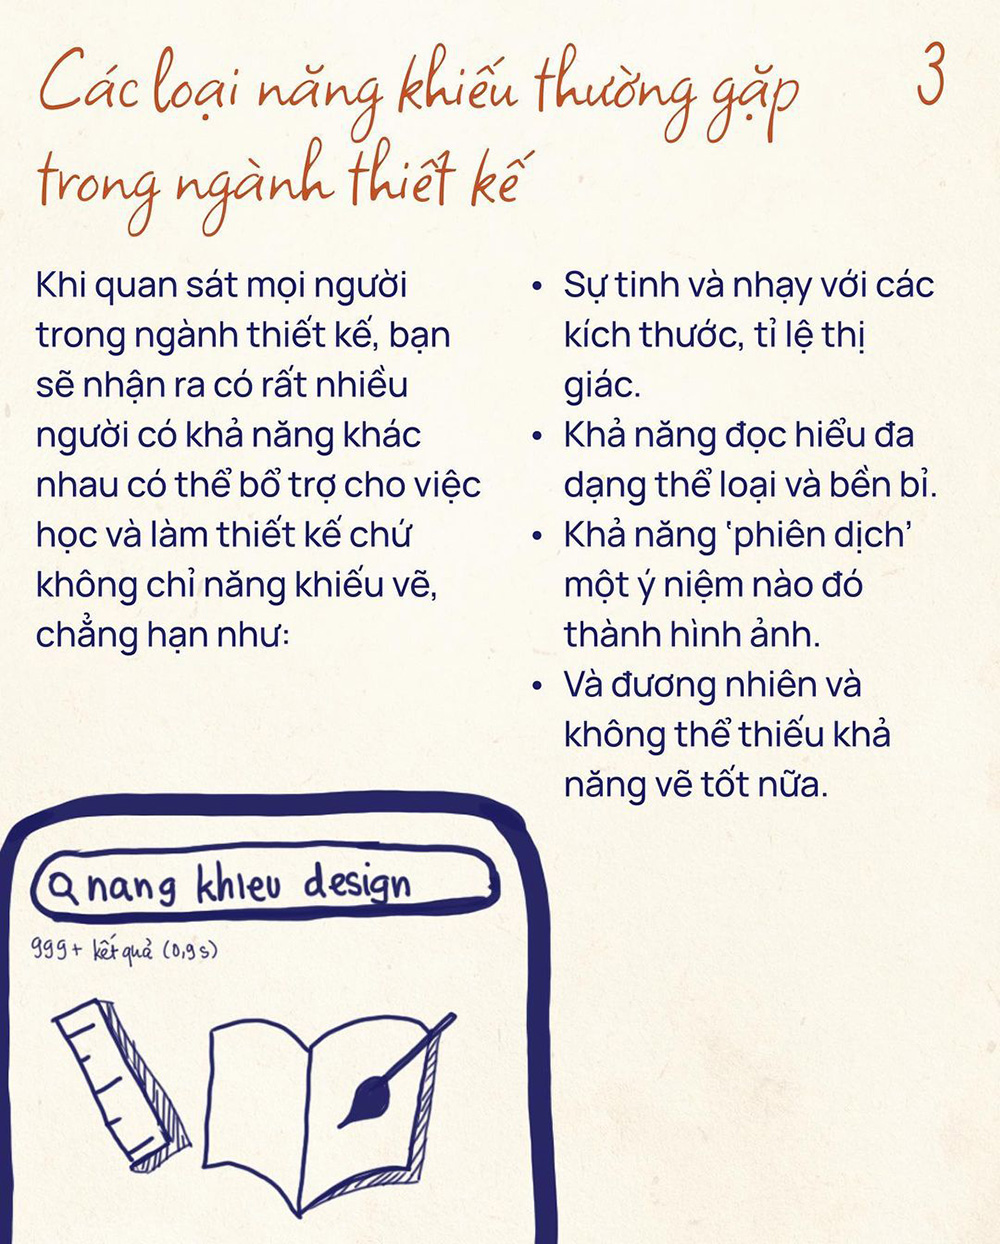 Các loại năng khiếu thường gặp
trong ngành thiết kế
3
Khi quan sát mọi người
trong ngành thiết kế, bạn
sẽ nhận ra có rất nhiều
người có khả năng khác
nhau có thể bổ trợ cho việc
học và làm thiết kế chứ
không chỉ năng khiếu vẽ,
chẳng hạn như:
• Sự tinh và nhạy với các
kích thước, tỉ lệ thị
giác.
• Khả năng đọc hiểu đa
dạng thể loại và bền bỉ.
• Khả năng ‘phiên dịch’
một ý niệm nào đó
thành hình ảnh.
• Và đương nhiên và
không thể thiếu khả
năng vẽ tốt nữa.
nang khieu design
999+ kết quả (0,9s)